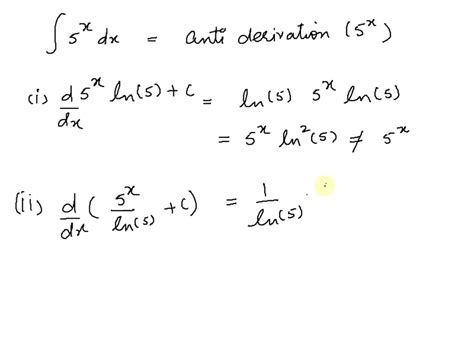 ∫ 5^x dx = anti derivation (5^x)
(i) d/dx 5^x ln(5) + C = ln(5) 5^x ln(5)
= 5^x ln²(5) ≠ 5^x
(ii) d/dx ( 5^x/ln(5) + C) = 1/ln(5) ·